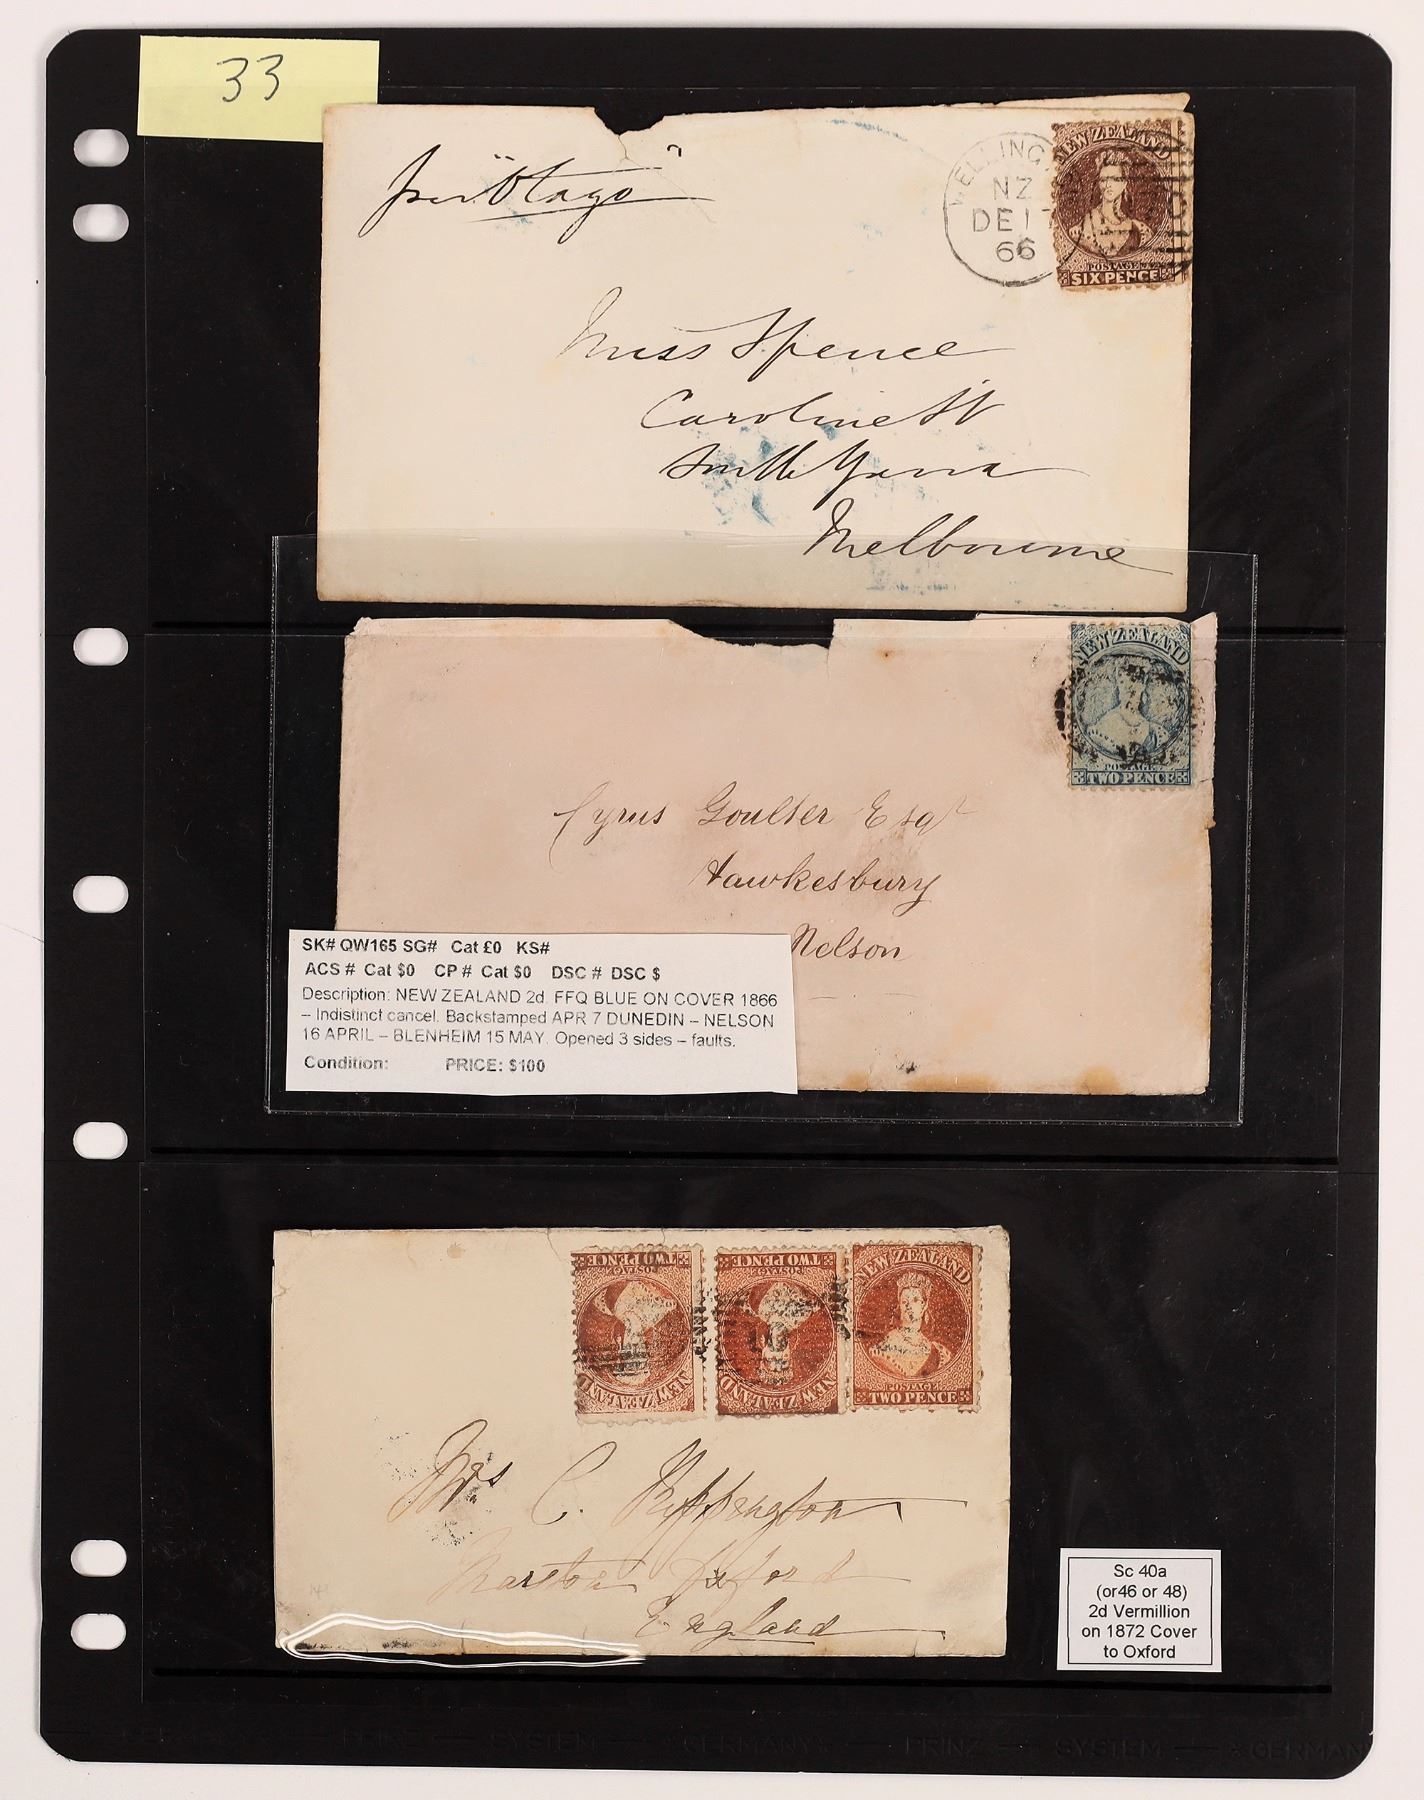 33
per "Otago"
WELLING
NZ
DE 17
66
NEW ZEALAND
POSTAGE
SIX PENCE
Miss Spence
Caroline St
South Yarra
Melbourne
NEW ZEALAND
POSTAGE
TWO PENCE
Cyrus Goulter Esqr
Hawkesbury
Nelson
SK# QW165 SG# Cat £0 KS#
ACS # Cat $0 CP # Cat $0 DSC # DSC $
Description: NEW ZEALAND 2d. FFQ BLUE ON COVER 1866
– Indistinct cancel. Backstamped APR 7 DUNEDIN – NELSON
16 APRIL – BLENHEIM 15 MAY. Opened 3 sides – faults.
Condition: PRICE: $100
TWO PENCE
POSTAGE
NEW ZEALAND
TWO PENCE
POSTAGE
NEW ZEALAND
NEW ZEALAND
POSTAGE
TWO PENCE
Mrs C.
Marston Oxford
England
Sc 40a
(or46 or 48)
2d Vermillion
on 1872 Cover
to Oxford
PRINZ — SYSTEM — *GERMANY* — PRINZ — SYSTEM — *GERMAN